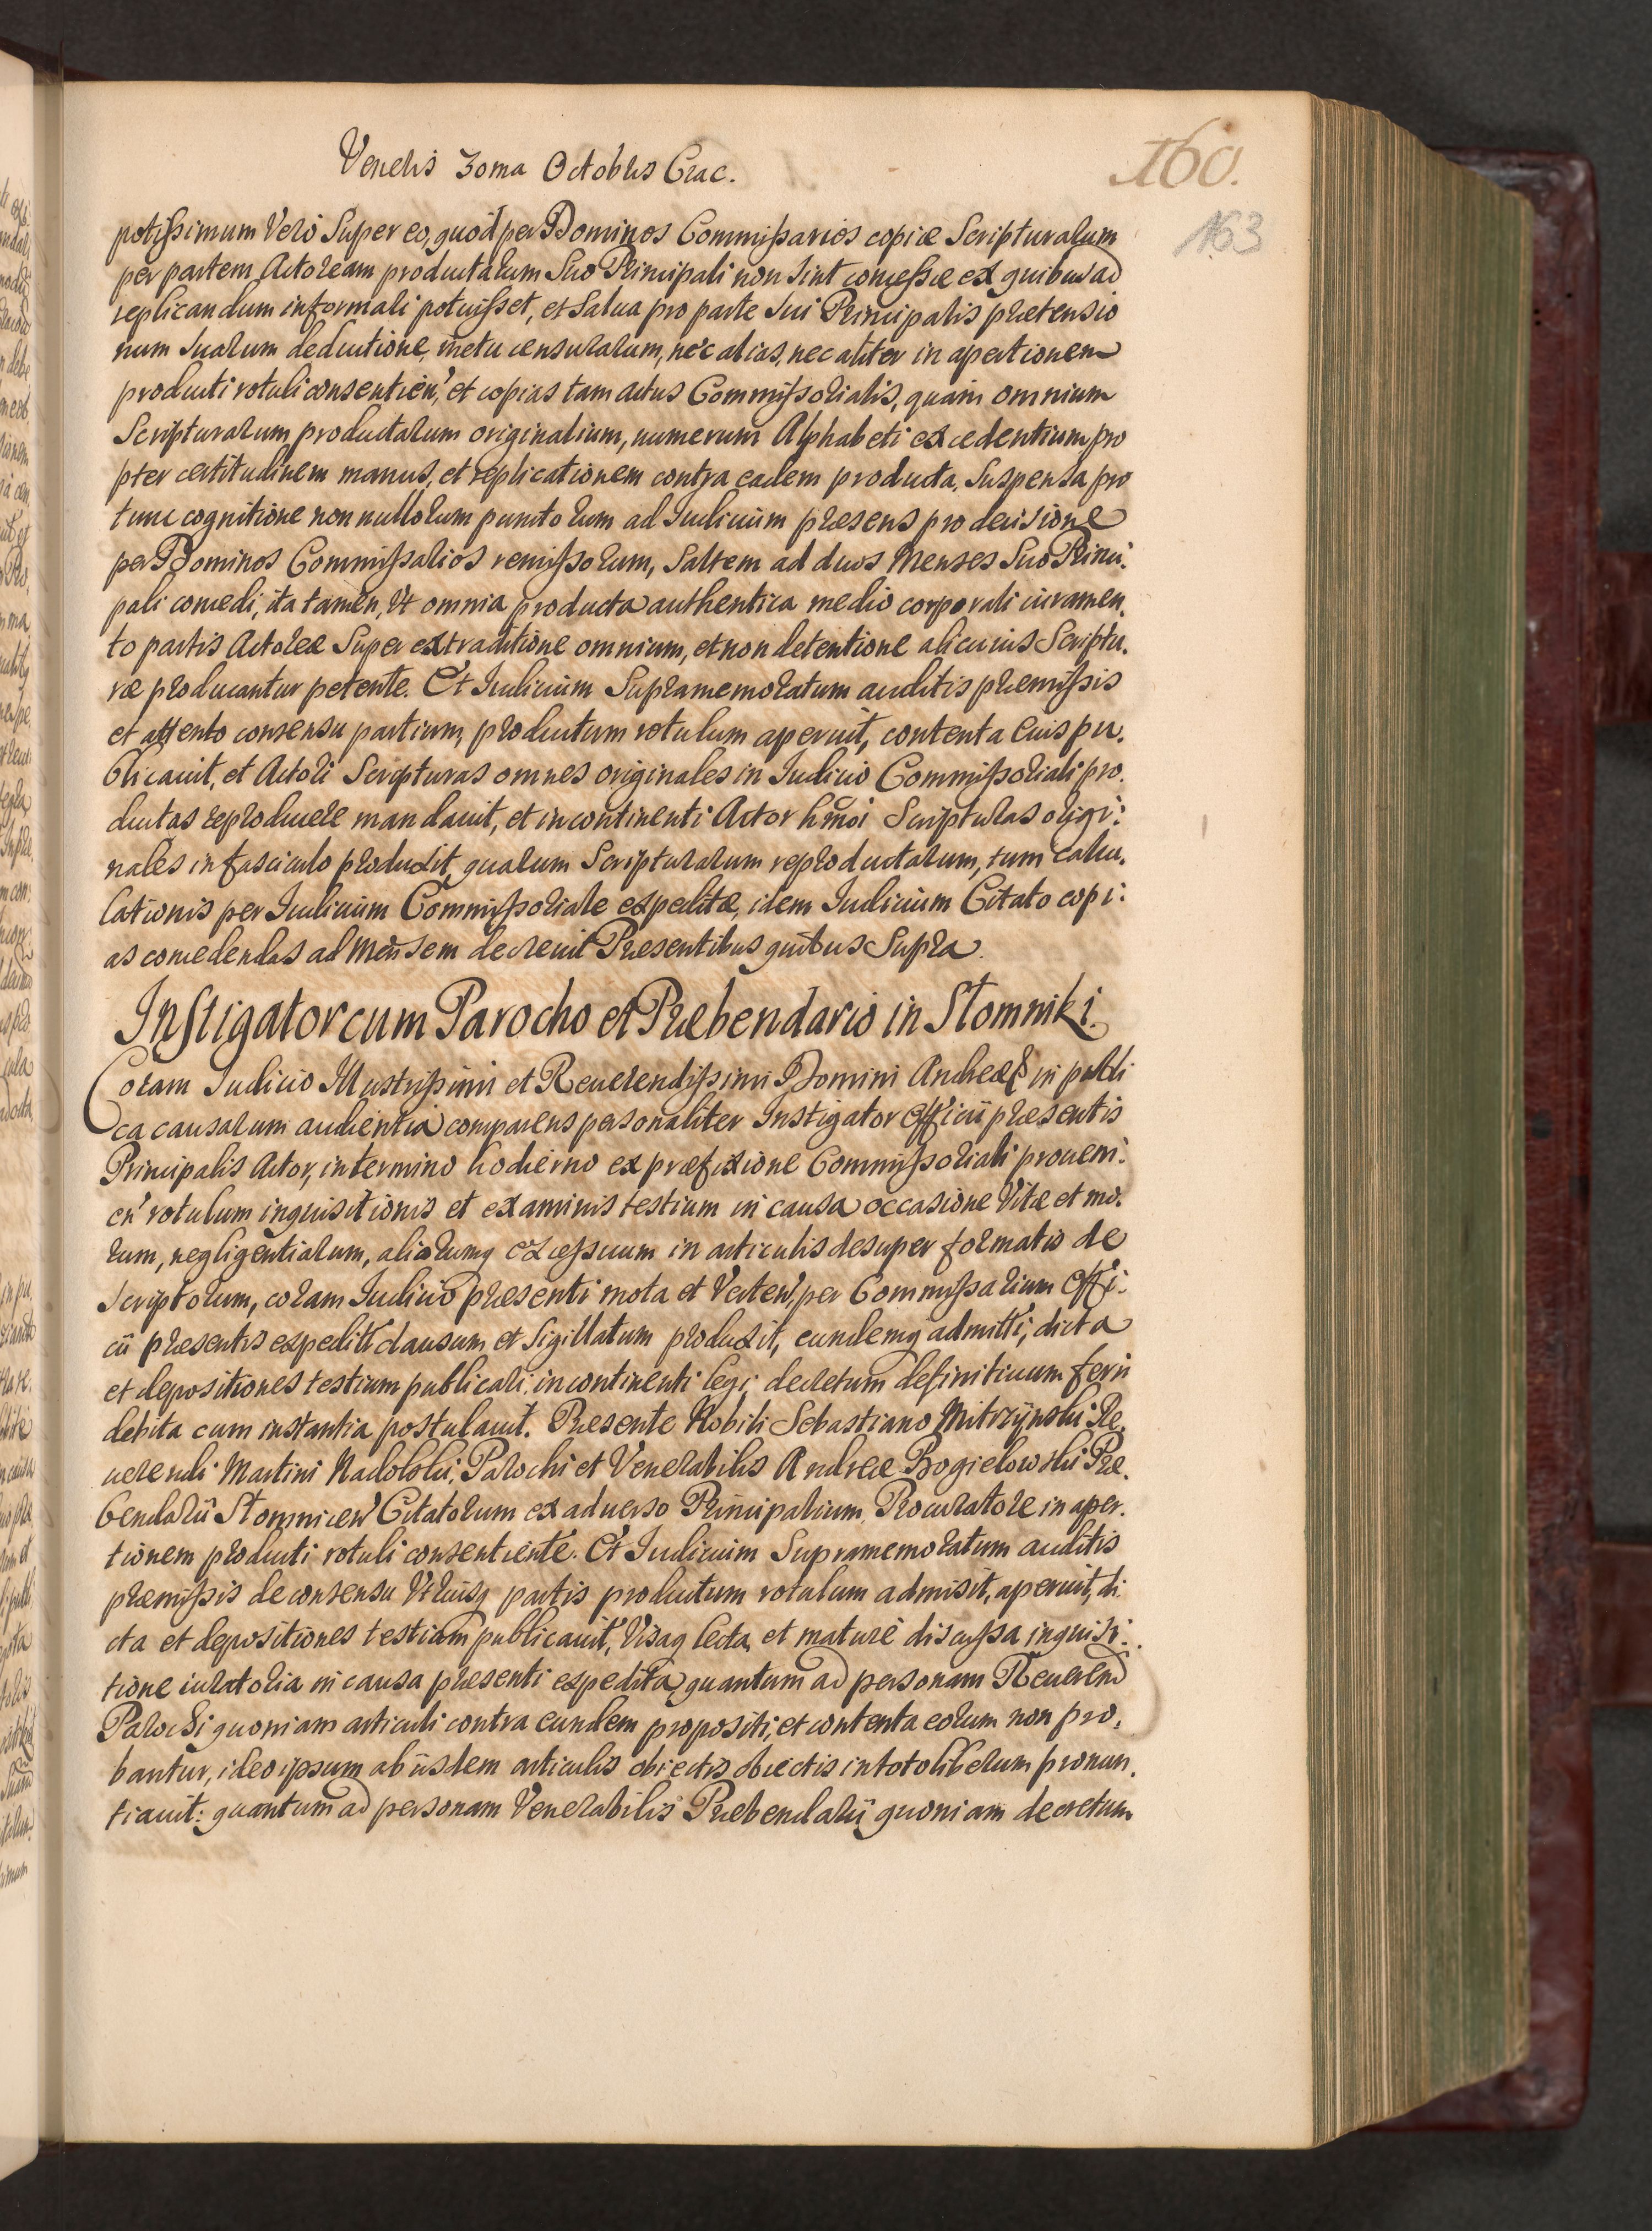 Veneris 30ma Octobris Crac.
160.
163
potissimum Vero Super eo, quod per Dominos Commissarios copiæ Scripturarum
per partem Actoream productarum Suo Principali non sint concessæ ex quibus ad
replicandum informari potuisset, et Salua pro parte sui Principalis prætensio
num suarum deductione, metu censurarum, nec alias, nec aliter in apertionem
producti rotuli consentien', et copias tam actus Commissorialis, quam omnium
Scripturarum productarum originalium, numerum Alphabeti excedentium pro
pter certitudinem manus, et replicationem contra eadem producta, Suspensa pro
tunc cognitione nonnullorum punctorum ad Iudicium præsens pro decisione
per Dominos Commissarios remissorum, Saltem ad duos Menses Suo Princi:
pali concedi, ita tamen, Vt omnia producta authentica medio corporali iuramen,
to partis Actoreæ Super extraditione omnium, et non detentione alicuius Scriptu,
ræ producantur petente. Et Iudicium Supramemoratum auditis præmissis
et attento consensu partium, productum rotulum aperuit, contenta eius pu,
blicauit, et Actori Scripturas omnes originales in Iudicio Commissoriali pro,
ductas reproducere mandauit, et incontinenti Actor hmoi Scripturas origi:
nales in fasciculo produxit, quarum Scripturarum reproductarum, tum calcu,
lationis per Iudicium Commissoriale expeditæ, idem Iudicium Citato copi:
as concedendas ad Mensem decreuit Præsentibus quibus Supra.
Instigator cum Parocho et Præbendario in Słomniki.
Coram Iudicio Illustrissimi et Reuerendissimi Domini Andreæ in publi
ca causarum audientia comparens personaliter Instigator Officii præsentis
Principalis Actor, in termino hodierno ex præfixione Commissoriali proueni:
en' rotulum inquisitionis et examinis testium in causa occasione Vitæ et mo,
rum, negligentiarum, aliorumq excessuum in articulis desuper formatis de
scriptorum, coram Iudicio præsenti mota et Verten', per Commissarium Offi:
cii præsentis expeditu clausum et Sigillatum produxit, eundemq admitti, dicta
et depositiones testium publicari, incontinenti legi, decretum definitiuum ferri
debita cum instantia postulauit. Præsente Nobili Sebastiano Mitrzÿnski Re,
uerendi Martini Nadolski, Parochi et Venerabilis Andreæ Bogielowski Præ,
bendarii Słomnicen' Citatorum ex aduerso Principalium, Procuratore in aper,
tionem producti rotuli consentiente. Et Iudicium Supramemoratum auditis
præmissis de consensu Vtriusq partis productum rotulum admisit, aperuit, di
cta et depositiones testium publicauit, Visaq lecta, et mature discussa inquisi:
tione iuratoria in causa præsenti expedita, quantum ad personam Reuerend
Parochi quoniam articuli contra eundem propositi, et contenta eorum non pro,
bantur, ideo ipsum ab iisdem articulis obiectis obiectis in toto liberum pronun,
tiauit: quantum ad personam Venerabilis Præbendarii quoniam decretum